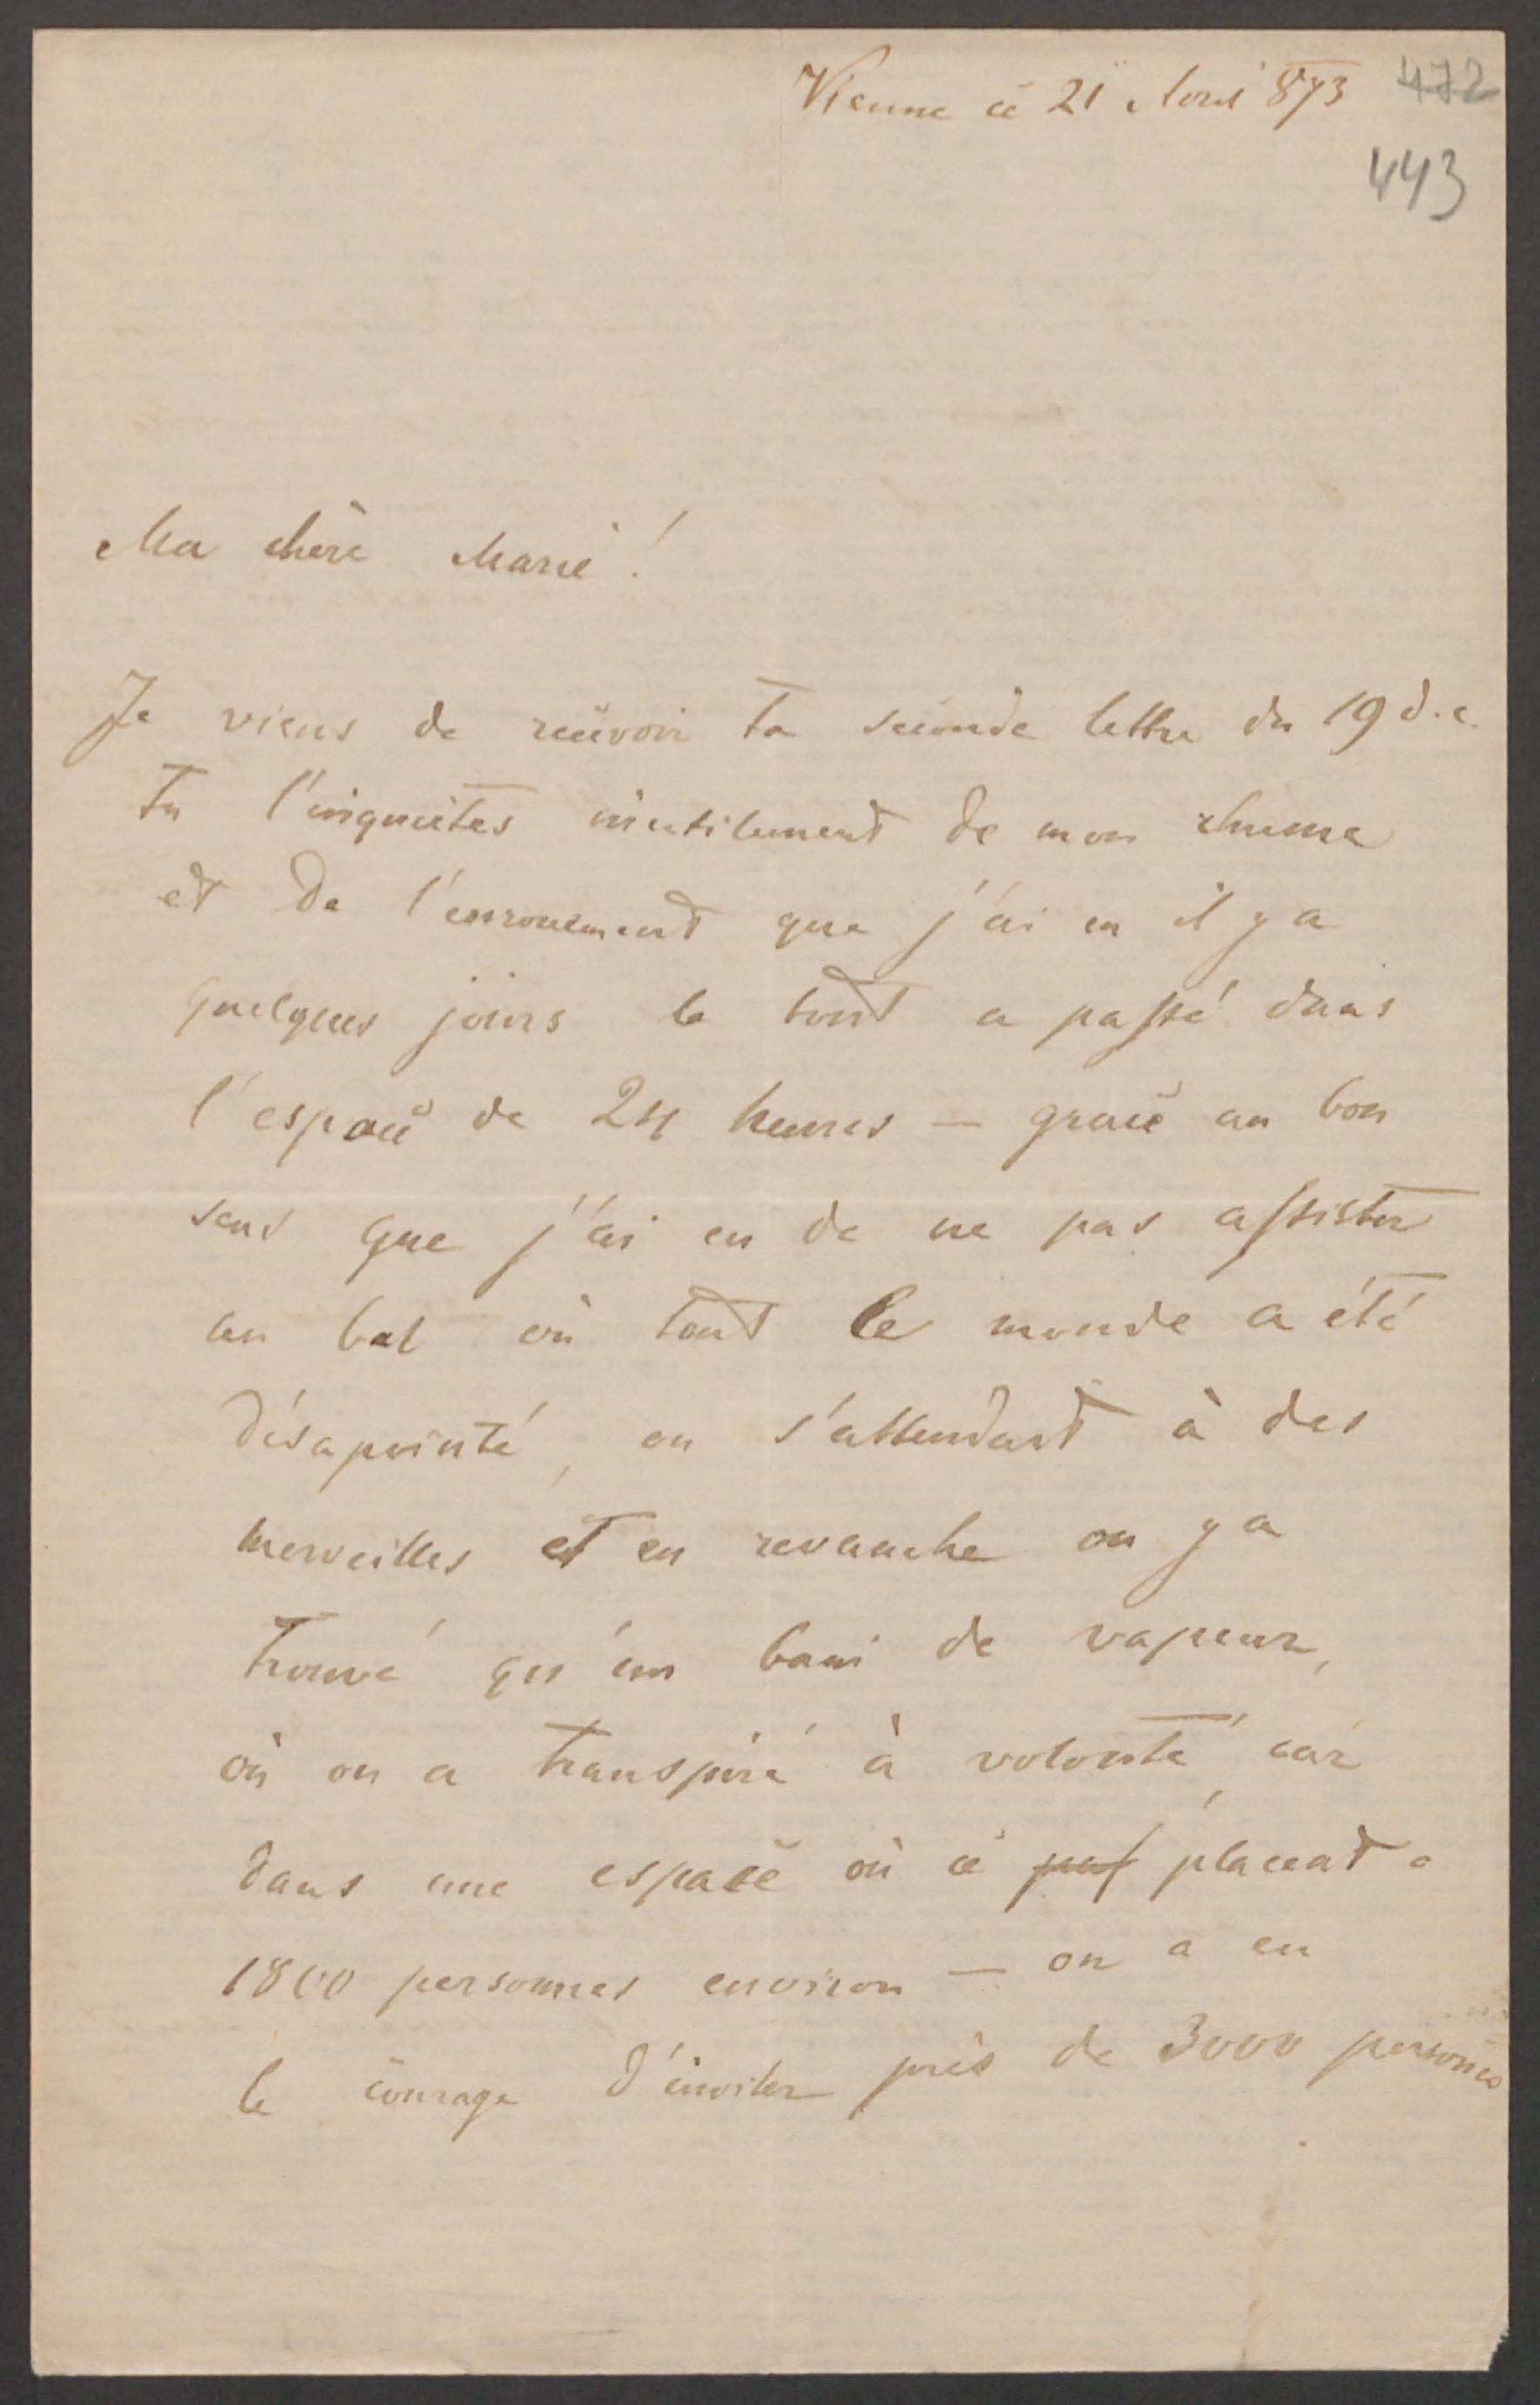 Vienne ce 21 Avril 873 472
443
Ma chère Marie!
Je viens de recevoir ta seconde lettre du 19 d.c.
Tu t'inquiètes inutilement de mon rhume
et de l'enrouement que j'ai eu il y a
quelques jours le tout a passé dans
l'espace de 24 heures — grace au bon
sens que j'ai eu de ne pas assister
au bal où tout le monde a été
désapointé, on s'attendait à des
merveilles et en revanche on y a
trouvé qu'un bain de vapeur,
où on a transpiré à volonté, car
dans une espace où ce placeat
1800 personnes environ — on a eu
le courage d'inviter près de 3000 personnes